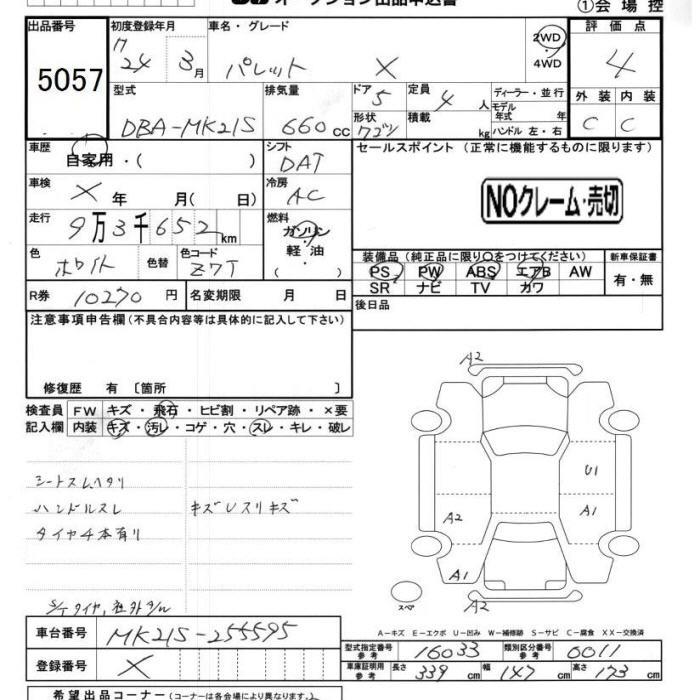 オークション出品申込書
①会場控
出品番号 初度登録年月 車名・グレード 評価点
5057 H 24 3月 パレット X 2WD・4WD 4
型式 排気量 ドア 5 定員 4人 ディーラー・並行 外装 内装
DBA-MK21S 660cc 形状 積載 kg モデル年式 年 C C
ハンドル 左・右
車歴 自家用・( ) シフト DAT セールスポイント (正常に機能するものに限ります)
車検 X 年 月( 日) 冷房 AC NOクレーム・売切
走行 9万3千652km 燃料 ガソリン・軽油・( )
装備品 (純正品に限り○をつけてください) 新車保証書
色 ホワイト 色替 色コード Z7T PS PW ABS エアB AW 有・無
SR ナビ TV カワ
R券 10270円 名変期限 月 日 後日品
注意事項申告欄 (不具合内容等は具体的に記入して下さい)
修復歴 有 〔箇所 〕
検査員 FW キズ・飛石・ヒビ割・リペア跡・×要
記入欄 内装 キズ・汚レ・コゲ・穴・スレ・キレ・破レ
A2
シートスレヘタリ U1
ハンドルスレ キズUスリキズ A2 A1
タイヤ4本有り
A1
S/Tタイヤ, 社外ホイル スペア A2
A-キズ E-エクボ U-凹み W-補修跡 S-サビ C-腐食 XX-交換済
車台番号 MK21S-255595
型式指定番号 参考 16033 類別区分番号 参考 6011
登録番号 X 車庫証明用 参考 長さ 339cm 幅 147cm 高さ 173cm
希望出品コーナー (コーナーは各会場により異なります。)